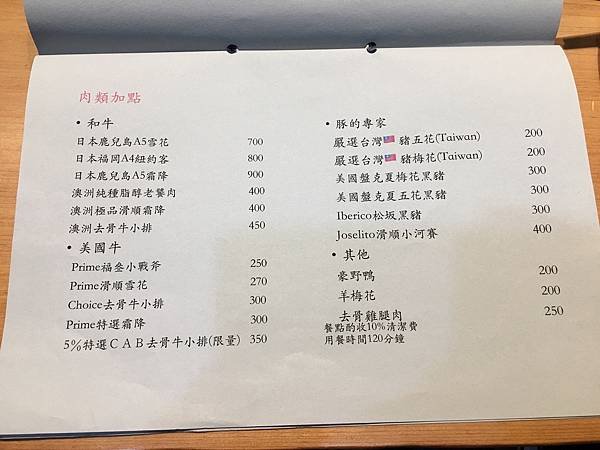 肉類加點
• 和牛
日本鹿兒島A5雪花 700
日本福岡A4紐約客 800
日本鹿兒島A5霜降 900
澳洲純種脂醇老饕肉 400
澳洲極品滑順霜降 400
澳洲去骨牛小排 450
• 美國牛
Prime福叁小戰斧 250
Prime滑順雪花 270
Choice去骨牛小排 300
Prime特選霜降 300
5%特選CAB去骨牛小排(限量) 350
• 豚的專家
嚴選台灣🇹🇼豬五花(Taiwan) 200
嚴選台灣🇹🇼豬梅花(Taiwan) 200
美國盤克夏梅花黑豬 300
美國盤克夏五花黑豬 300
Iberico松坂黑豬 300
Joselito滑順小河賽 400
• 其他
豪野鴨 200
羊梅花 200
去骨雞腿肉 250
餐點酌收10%清潔費
用餐時間120分鐘